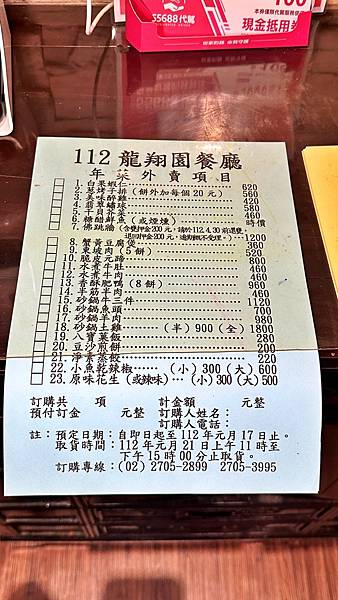 100
55688代駕
現金抵用券
112 龍翔園餐廳
年菜外賣項目
1. 白果蝦仁 620
2. 葱烤子排 (餅外加每個20元) 560
460
460
460
6. 糖醋鮮魚 (或煙燻) 時價
7. 佛跳牆 (含甕押金200元,請於112.4.30前退甕 退回押金200元,逾期恕不受理。) 1200
8. 蟹黃豆腐煲 360
9. 東坡肉 (5餅) 520
10. 脆皮元蹄 800
11. 水煮牛肚 460
12. 水煮牛肉 460
13. 香酥肥鴨 (8餅) 960
14. 羊筋半肉
15. 砂鍋牛三件 1120
16. 砂鍋魚頭 700
17. 砂鍋羊肉 980
18. 砂鍋土雞 (半)900 (全)1800
19. 八寶菜飯 280
20. 豆沙煎餅 200
21. 淨素蒸餃 220
22. 小魚乾辣椒…… (小)300(大)600
23. 原味花生 (或辣味)… (小)300(大)500
訂購共 項 計金額 元整
預付訂金 元整 訂購人姓名:
訂購人電話:
註:預定日期:自即日起至 112 年元月 17 日止。
取貨時間:112 年元月 21 日上午 11 時至
下午 15 時 00 分止取貨。
訂購專線:(02) 2705-2899 2705-3995